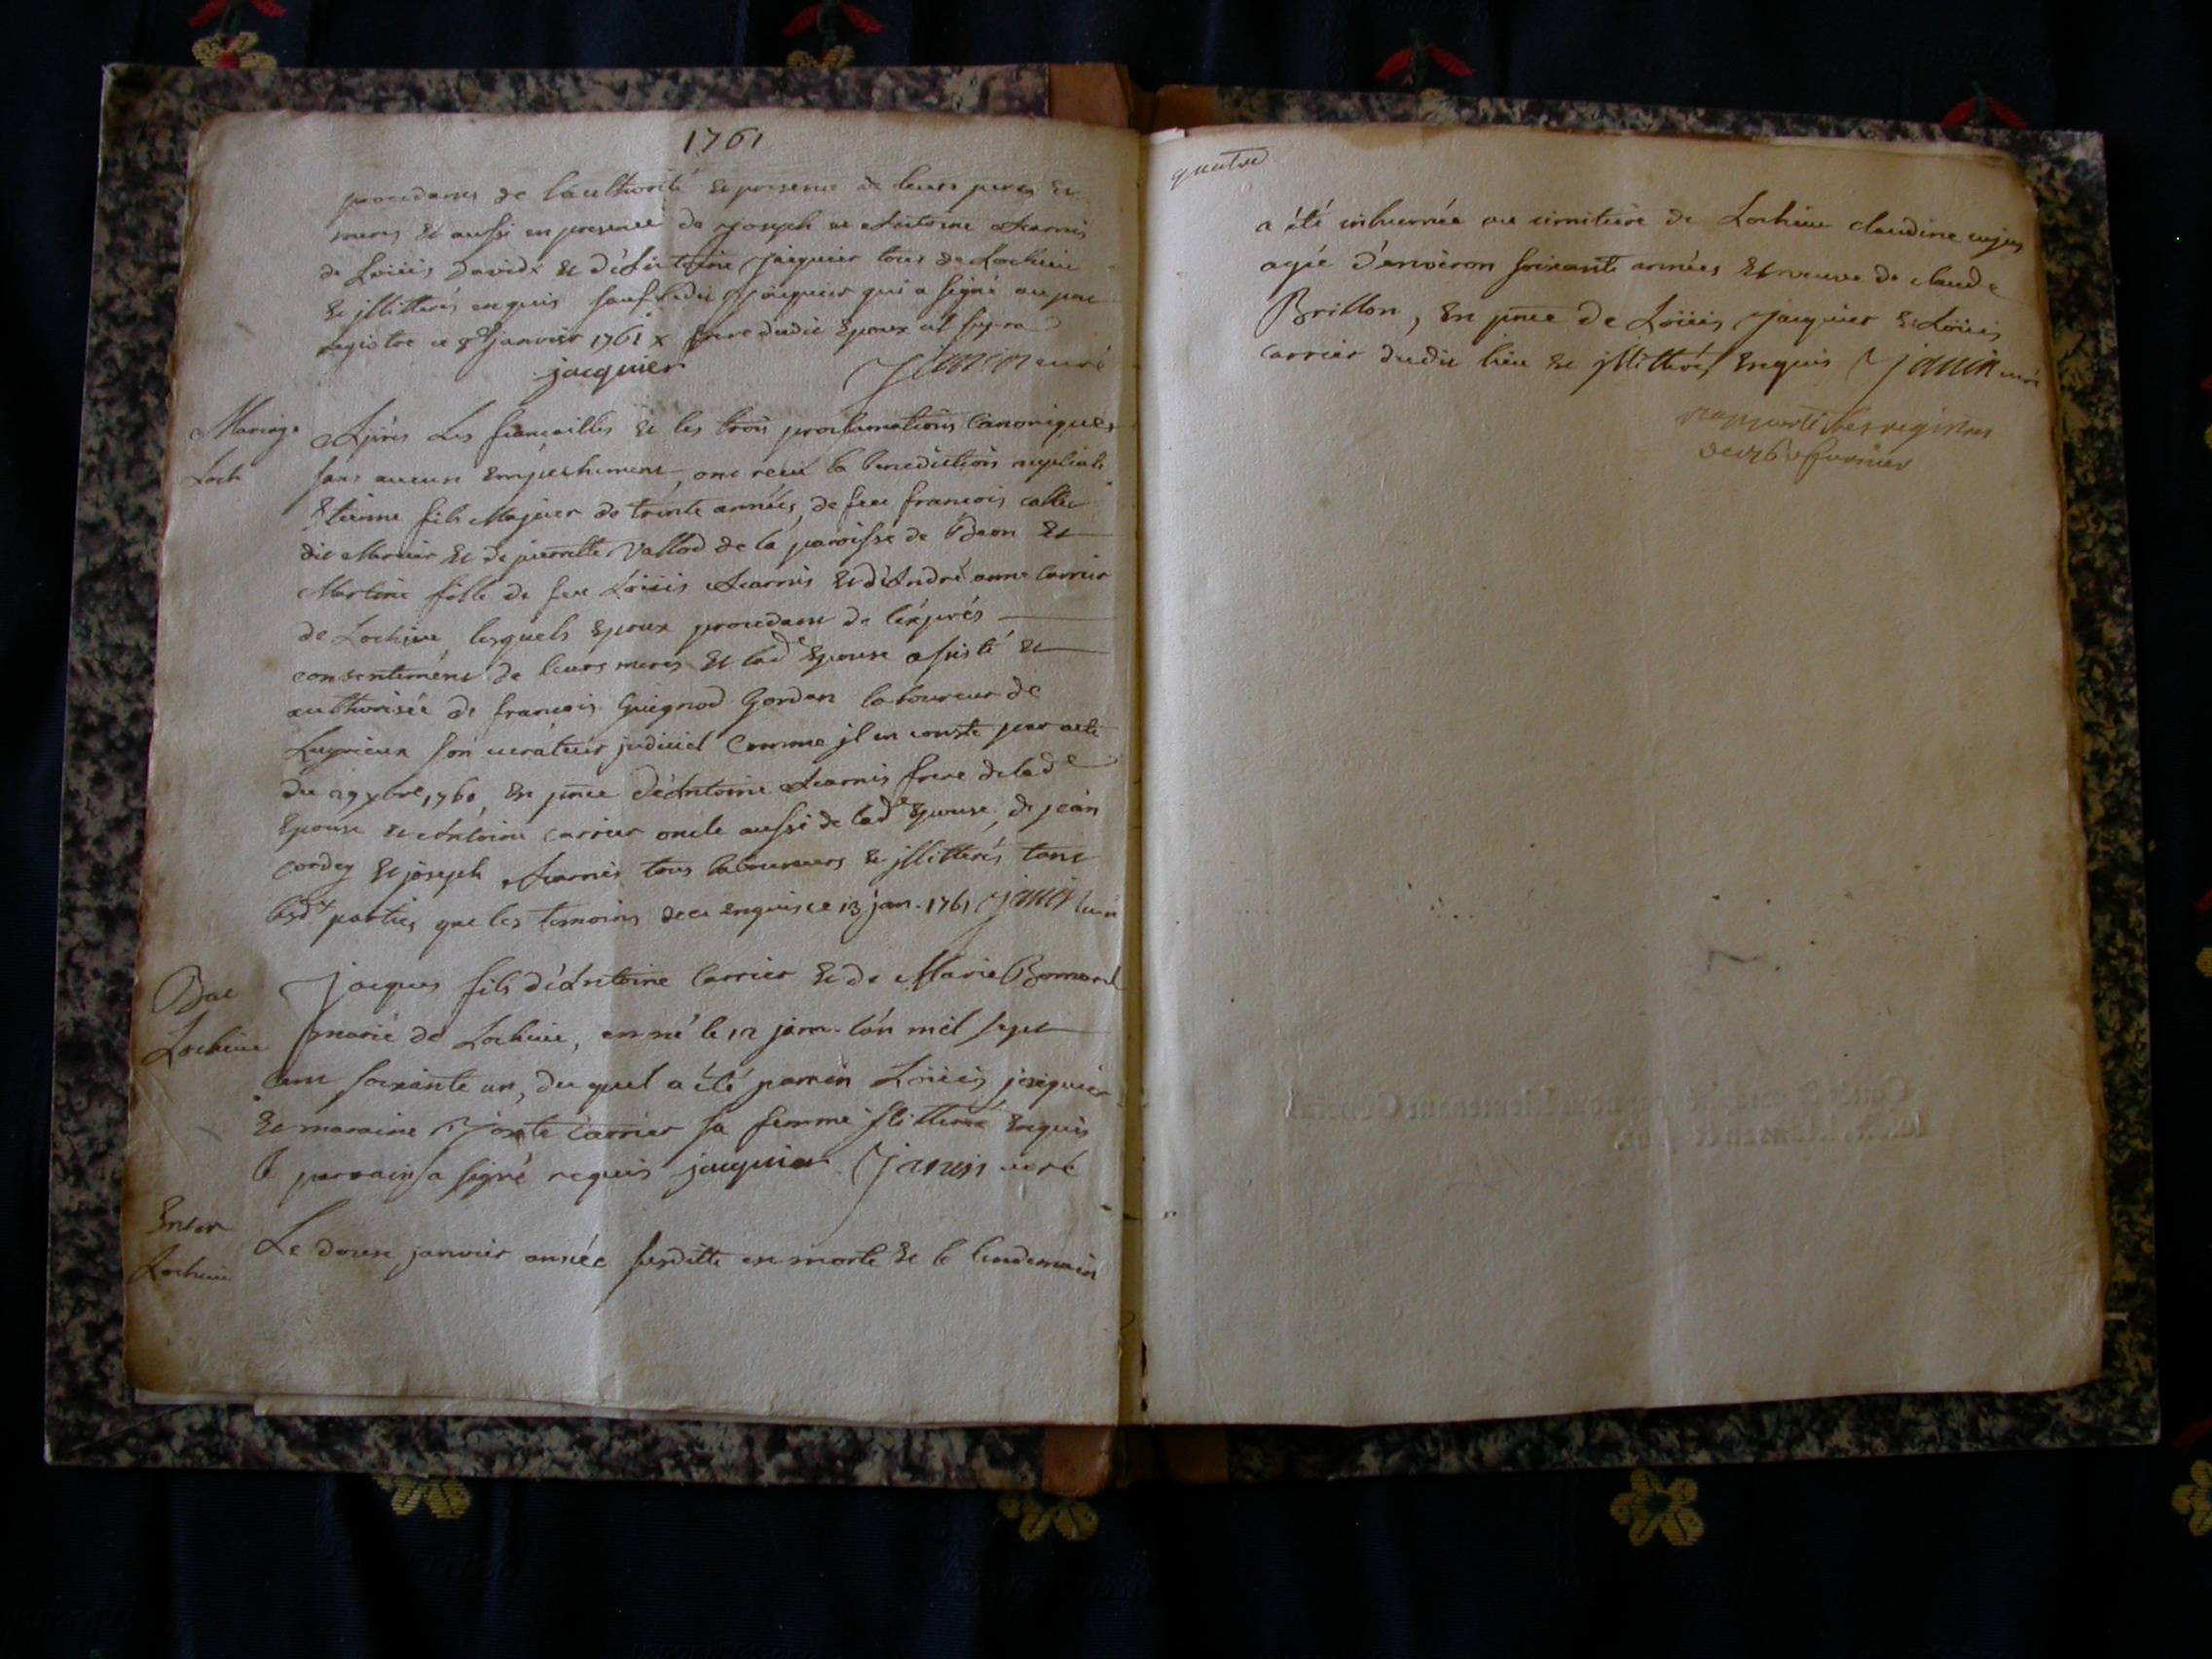 1761
procedants de l'authorité et presence de leurs peres et
meres et aussi en presence de joseph et Antoine
de Loüis Davidx et d'Antoine jacquier tous de Lochieu
et jllitterés enquis sauf ledit jacquier qui a signé au pnt
registre ce janvier 1761 x frere dudit Epoux ut supra
jacquier Janin curé
Mariage
Loch
Après Les fiançailles et les trois proclamations Canoniques
sans aucun Empeschement, ont receu la benediction nuptiale
Etienne fils Majeur de trente années, de feu françois
dit et de pierrette Vallod de la paroisse de Beon et
Martine fille de feu Loüis et d'André anne Carrier
de Lochieu, lesquels Epoux procedans de l'éxprés
consentement de leurs meres et lad.e Epouse assisté et
authorisée de françois Guignod Gordan laboureur de
Luyrieux son curateur judiciel Comme jl en conste par acte
du 29 xbre 1760, En pnce d'Antoine frere de lad.e
Epouse et Antoine carrier oncle aussi de lad.e Epouse, de jean
cordey et joseph tous laboureurs et jllitterés tant
lesd.t parties que les temoins de ce enquis ce 13 jan. 1761 janin curé
Bat
Lochieu
jacques fils d'Antoine Carrier et de Marie Bornard
marié de Lochieu, est né le 12 janv. l'an mil sept
cent soixante un, du quel a été parrin Loüis jacquier
et maraine Carrier sa femme jllitteré Enquis
le parrain a signé requis jacquier Janin curé
Enter
Lochieu
Le douze janvier année susditte est morte et le lendemain
quatre
a été inhumée au cimitiere de Lochieu claudine cujus
agée d'environ soixante années et veuve de claude
Brillon, En pnce de Loüis jacquier et Loüis
carrier dudit lieu et jllitterés Enquis Janin curé
rapporté les registres